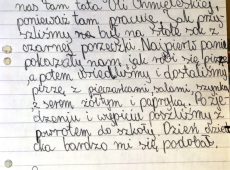 nas tam tata Oli Chmielskiej,
ponieważ tam pracuje. Jak przy-
szliśmy na
czarnej porzeczki. Najpierw panie
pokazały nam, jak robi się pizzę,
a potem usiedliśmy i dostaliśmy
pizzę z pieczarkami, salami, szynką,
z serem żółtym i papryką. Po zje-
dzeniu i wypiciu poszliśmy z
powrotem do szkoły. Dzień dziec-
ka bardzo mi się podobał.